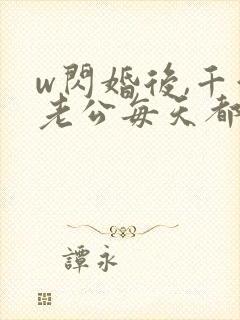 w閃婚後,千
老公每天都
譚永